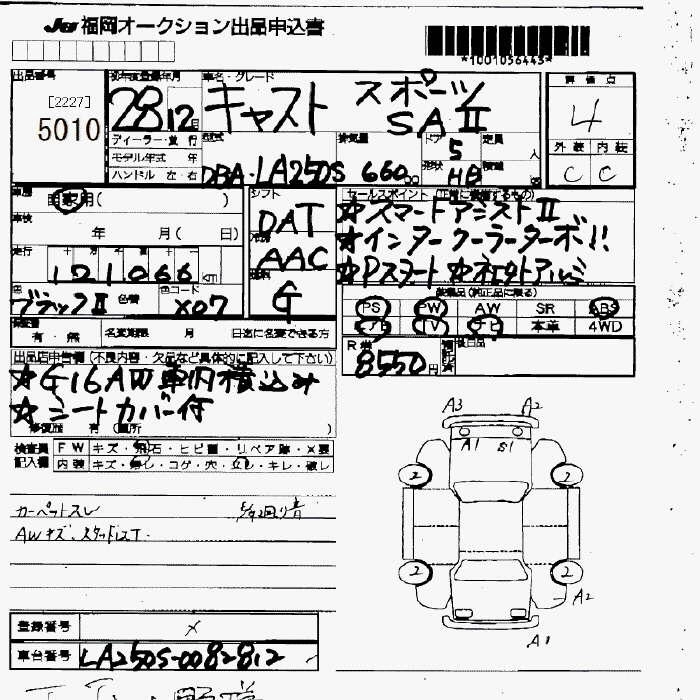 JU福岡オークション出品申込書
*1001056443*
出品番号
[2227]
5010
初年度登録年月
28 12月
車名・グレード
キャスト スポーツ
SAⅡ
評価点
4
ディーラー・並行
モデル年式 年
ハンドル 左・右
型式
DBA-LA250S
排気量
660cc
ドア
5
形状
HB
定員
人
外装 内装
C C
車歴
自家用( )
車検
年 月( 日)
走行
121066 km
色
ブラックⅡ
色替
色コード
X07
シフト
DAT
冷房
AAC
燃料
G
セールスポイント (正常に装備するもの)
☆スマートアシストⅡ
☆インタークーラーターボ!!
☆Pスタート ☆社外アルミ
装備品(純正品に限る)
PS PW AW SR ABS
エアB TV ナビ 本革 4WD
R券
8550円
後日品
保証書
有・無
名変期限 月 日迄に名変できる方
出品店申告欄(不良内容・欠品など具体的に記入して下さい)
☆G16AW車内積込み
☆シートカバー付
修復歴 有(箇所 )
検査員
記入欄
FW キズ・飛石・ヒビ・リペア跡・X要
内装 キズ・汚し・コゲ・穴・スレ・キレ・破レ
カーペットスレ
AWキズ・スタッドレスT
A3 A2
A1 S1
2 2
2 2
A2
A1
登録番号
×
車台番号
LA250S-0082812